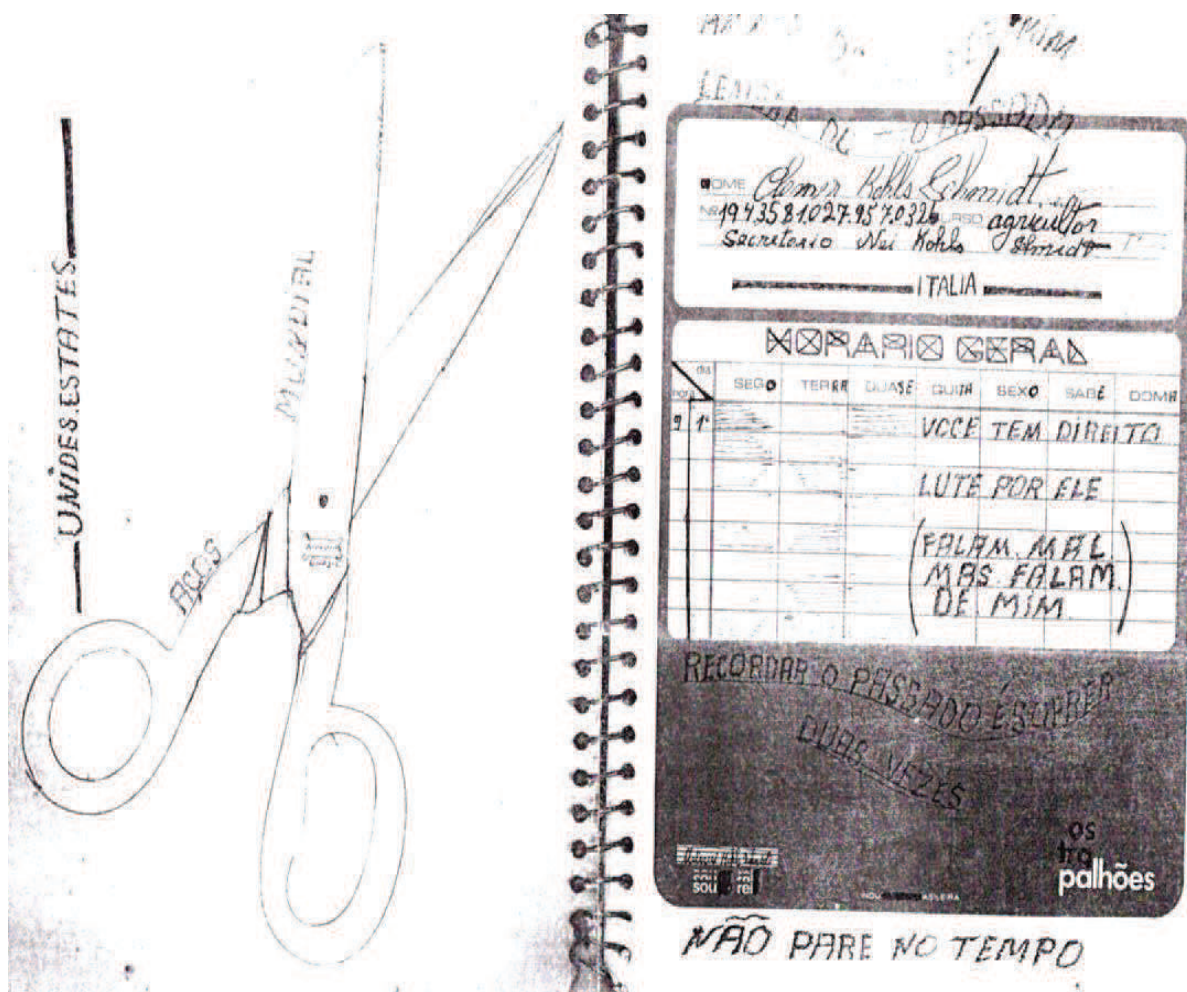 UNIDES.ESTATES
MUNDIAL
AÇOS
MIM
O PASSADA
NOME Clemir Kohls Schmidt
1943581.027.957.032 CURSO agricultor
Secretario Nei Kohls Shmidt
ITALIA
HORARIO GERAL
dia
hora SEGO TERRA QUASE QUINA SEXO SABE DOMA
9 1ª VOCE TEM DIREITO
LUTE POR ELE
(FALAM. MAL.
MAS FALAM.
DE MIM)
RECORDAR O PASSADO É SOFRER
DUAS VEZES
os
tra
palhões
NÃO PARE NO TEMPO